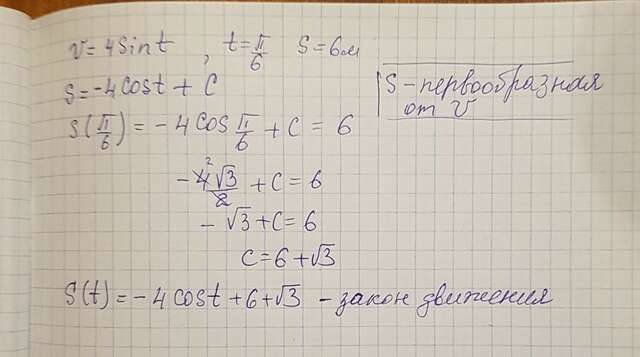 v = 4 sin t , t = π/6 S = 6м
S = -4cos t + C
S - первообразная
от v
S(π/6) = -4 cos π/6 + C = 6
- 4² √3 / 2 + C = 6
- √3 + C = 6
C = 6 + √3
S(t) = -4 cos t + 6 + √3 - закон движения